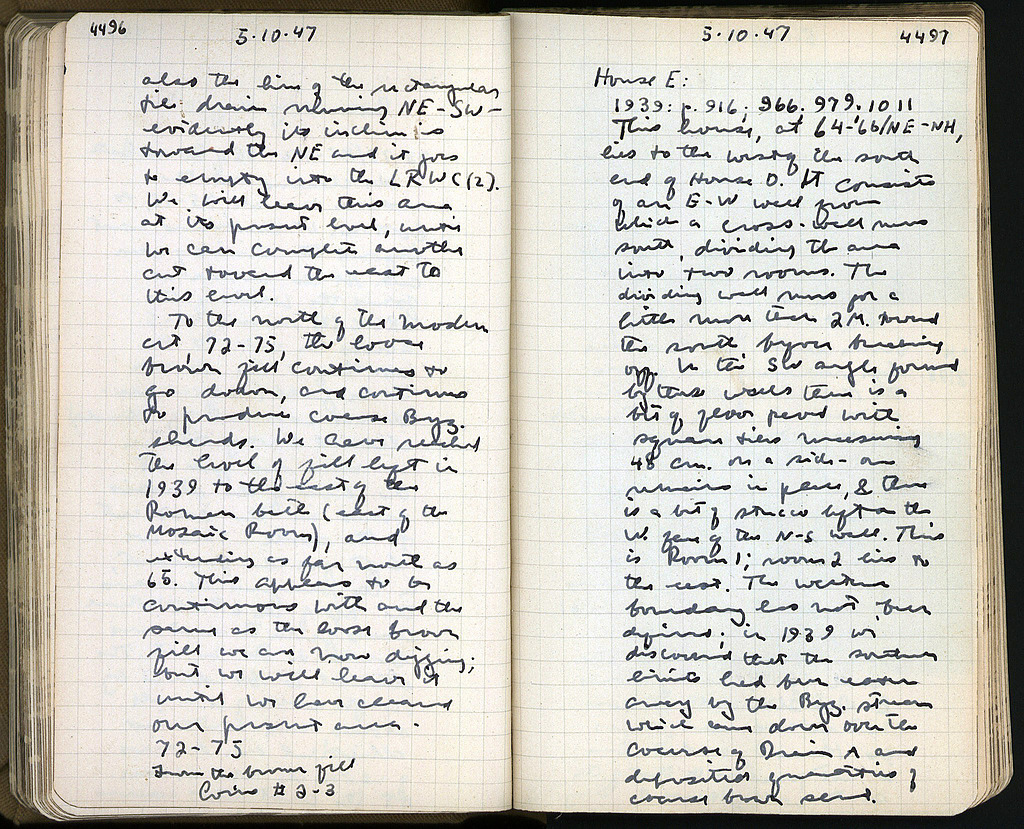 4496
5·10·47
also the line of the rectangular
tile drain running NE-SW-
evidently its incline is
toward the NE and it goes
to empty into the LRWC(2).
We will leave this area
at its present level, until
we can complete another
cut toward the east to
this level.
To the north of the modern
cut, 72-75, the loose
brown fill continues to
go down, and continues
to produce coarse Byz.
sherds. We have reached
the level of fill left in
1939 to the east of the
Roman bath (east of the
Mosaic Room), and
extending as far north as
65. This appears to be
continuous with and the
same as the loose brown
fill we are now digging;
but we will leave it
until we have cleared
our present area.
72-75
From the brown fill
Coins # 2-3
5·10·47
4497
House E:
1939: p. 916; 966. 979. 1011
This house, at 64-'66/NE-NH,
lies to the west of the south
end of House D. It consists
of an E-W wall from
which a cross-wall runs
south, dividing the area
into two rooms. The
dividing wall runs for a
little more than 2 M. toward
the south before breaking
off. In the SW angle formed
by these walls there is a
bit of floor paved with
square tiles measuring
48 cm. on a side - one
remains in place, & there
is a bit of stucco left on the
W. face of the N-S wall. This
is Room 1; room 2 lies to
the east. The western
boundary has not been
defined; in 1939 we
discovered that the southern
limits had been eaten
away by the Byz. stream
which came down over the
course of Drain A and
deposited quantities of
coarse brown sand.